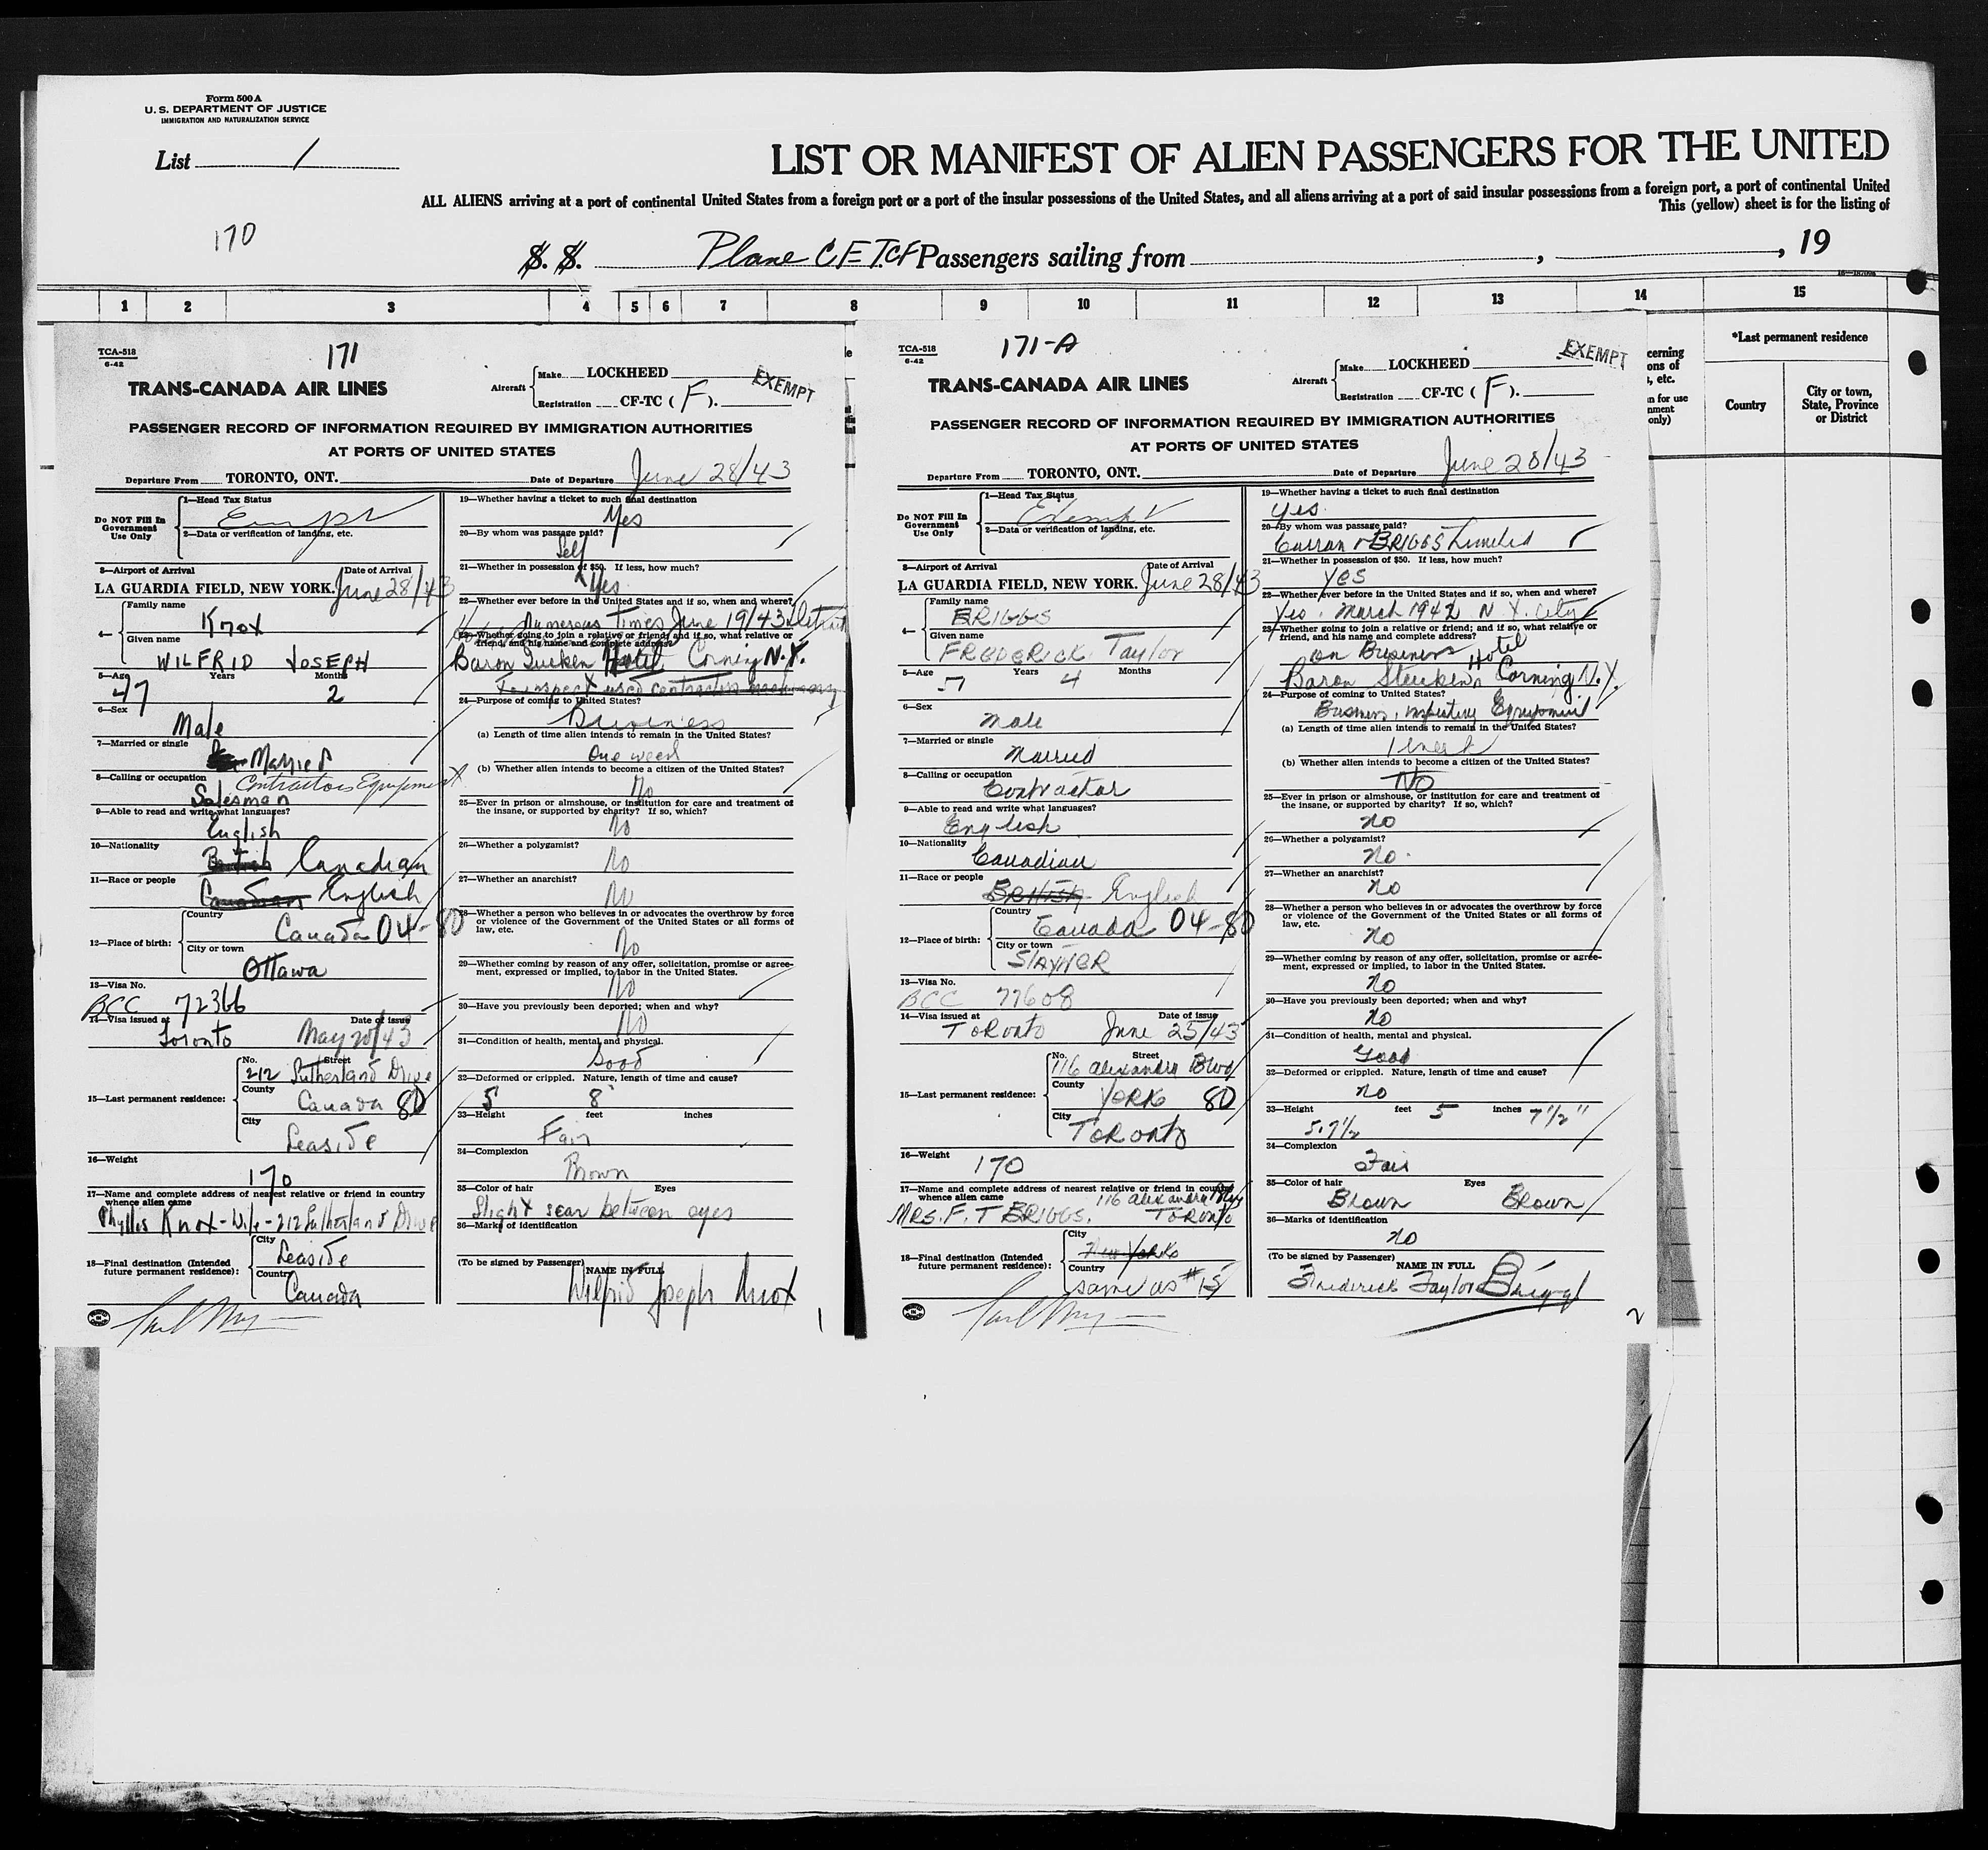 Form 500 A
U. S. DEPARTMENT OF JUSTICE
IMMIGRATION AND NATURALIZATION SERVICE
List 1
LIST OR MANIFEST OF ALIEN PASSENGERS FOR THE UNITED
ALL ALIENS arriving at a port of continental United States from a foreign port or a port of the insular possessions of the United States, and all aliens arriving at a port of said insular possessions from a foreign port, a port of continental United
This (yellow) sheet is for the listing of
170
S. S. Plane CF TCF Passengers sailing from , , 19
1 2 3 4 5 6 7 8 9 10 11 12 13 14 15
*Last permanent residence
Country
City or town, State, Province or District
cerning
ons of
, etc.
n for use
nment
only)
TCA-518
6-42
171
TRANS-CANADA AIR LINES
Aircraft
Make LOCKHEED
Registration CF-TC (F).
EXEMPT
PASSENGER RECORD OF INFORMATION REQUIRED BY IMMIGRATION AUTHORITIES
AT PORTS OF UNITED STATES
Departure From TORONTO, ONT. Date of Departure June 28/43
Do NOT Fill In Government Use Only
1—Head Tax Status
Exempt
2—Data or verification of landing, etc.
3—Airport of Arrival Date of Arrival
LA GUARDIA FIELD, NEW YORK. June 28/43
4—
Family name
Knox
Given name
WILFRID JOSEPH
5—Age Years Months
47 2
6—Sex
Male
7—Married or single
Married
8—Calling or occupation Contractors Equipment
Salesman
9—Able to read and write what languages?
English
10—Nationality
British Canadian
11—Race or people
Canadian English
12—Place of birth:
Country
Canada 04-80
City or town
Ottawa
13—Visa No.
BCC 72366
14—Visa issued at Date of issue
Toronto May 20/43
15—Last permanent residence:
No. Street
212 Sutherland Drive
County
Canada 80
City
Leaside
16—Weight
170
17—Name and complete address of nearest relative or friend in country whence alien came
Phyllis Knox - Wife - 212 Sutherland Drive
18—Final destination (Intended future permanent residence):
City
Leaside
Country
Canada
19—Whether having a ticket to such final destination
Yes
20—By whom was passage paid?
Self
21—Whether in possession of $50. If less, how much?
Yes
22—Whether ever before in the United States and if so, when and where?
Numerous Times June 19/43 Detroit
23—Whether going to join a relative or friend; and if so, what relative or friend, and his name and complete address?
Baron Hotel Corning N.Y.
To inspect used contractors machinery
24—Purpose of coming to United States?
Business
(a) Length of time alien intends to remain in the United States?
One week
(b) Whether alien intends to become a citizen of the United States?
No
25—Ever in prison or almshouse, or institution for care and treatment of the insane, or supported by charity? If so, which?
No
26—Whether a polygamist?
No
27—Whether an anarchist?
No
28—Whether a person who believes in or advocates the overthrow by force or violence of the Government of the United States or all forms of law, etc.
No
29—Whether coming by reason of any offer, solicitation, promise or agreement, expressed or implied, to labor in the United States.
No
30—Have you previously been deported; when and why?
No
31—Condition of health, mental and physical.
Good
32—Deformed or crippled. Nature, length of time and cause?
5 8
33—Height feet inches
Fair
34—Complexion
Brown
35—Color of hair Eyes
Slight scar between eyes
36—Marks of identification
(To be signed by Passenger) NAME IN FULL
Wilfrid Joseph Knox
1
TCA-518
6-42
171-A
TRANS-CANADA AIR LINES
Aircraft
Make LOCKHEED
Registration CF-TC (F).
EXEMPT
PASSENGER RECORD OF INFORMATION REQUIRED BY IMMIGRATION AUTHORITIES
AT PORTS OF UNITED STATES
Departure From TORONTO, ONT. Date of Departure June 28/43
Do NOT Fill In Government Use Only
1—Head Tax Status
Exempt
2—Data or verification of landing, etc.
3—Airport of Arrival Date of Arrival
LA GUARDIA FIELD, NEW YORK. June 28/43
4—
Family name
BRIGGS
Given name
FREDERICK Taylor
5—Age Years Months
51 4
6—Sex
Male
7—Married or single
Married
8—Calling or occupation
Contractor
9—Able to read and write what languages?
English
10—Nationality
Canadian
11—Race or people
British English
12—Place of birth:
Country
Canada 04-80
City or town
STAYNER
13—Visa No.
BCC 77608
14—Visa issued at Date of issue
Toronto June 25/43
15—Last permanent residence:
No. Street
116 Alexandra Blvd
County
YORK 80
City
Toronto
16—Weight
170
17—Name and complete address of nearest relative or friend in country whence alien came
116 Alexandra Blvd
MRS. F. T BRIGGS. TORONTO
18—Final destination (Intended future permanent residence):
City
New York
Country
same as #15
19—Whether having a ticket to such final destination
yes
20—By whom was passage paid?
Curran & BRIGGS Limited
21—Whether in possession of $50. If less, how much?
yes
22—Whether ever before in the United States and if so, when and where?
Yes. March 1942 N.Y. City
23—Whether going to join a relative or friend; and if so, what relative or friend, and his name and complete address?
on Business Hotel
Baron Steuben, Corning N.Y.
24—Purpose of coming to United States?
Business, inspecting Equipment
(a) Length of time alien intends to remain in the United States?
1 week
(b) Whether alien intends to become a citizen of the United States?
No
25—Ever in prison or almshouse, or institution for care and treatment of the insane, or supported by charity? If so, which?
no
26—Whether a polygamist?
no.
27—Whether an anarchist?
no
28—Whether a person who believes in or advocates the overthrow by force or violence of the Government of the United States or all forms of law, etc.
no
29—Whether coming by reason of any offer, solicitation, promise or agreement, expressed or implied, to labor in the United States.
no
30—Have you previously been deported; when and why?
no
31—Condition of health, mental and physical.
Good
32—Deformed or crippled. Nature, length of time and cause?
no
33—Height feet 5 inches 7 1/2"
5.7 1/2
34—Complexion
Fair
35—Color of hair Eyes
Brown Brown
36—Marks of identification
no
(To be signed by Passenger) NAME IN FULL
Frederick Taylor Briggs
2